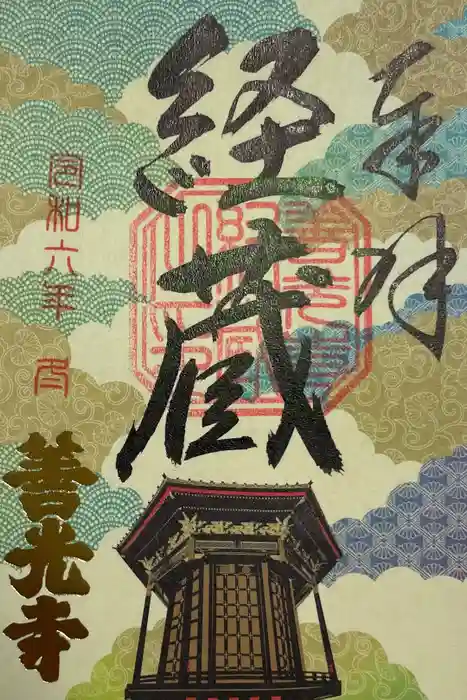 奉拝
経蔵
令和六年 月
善光寺